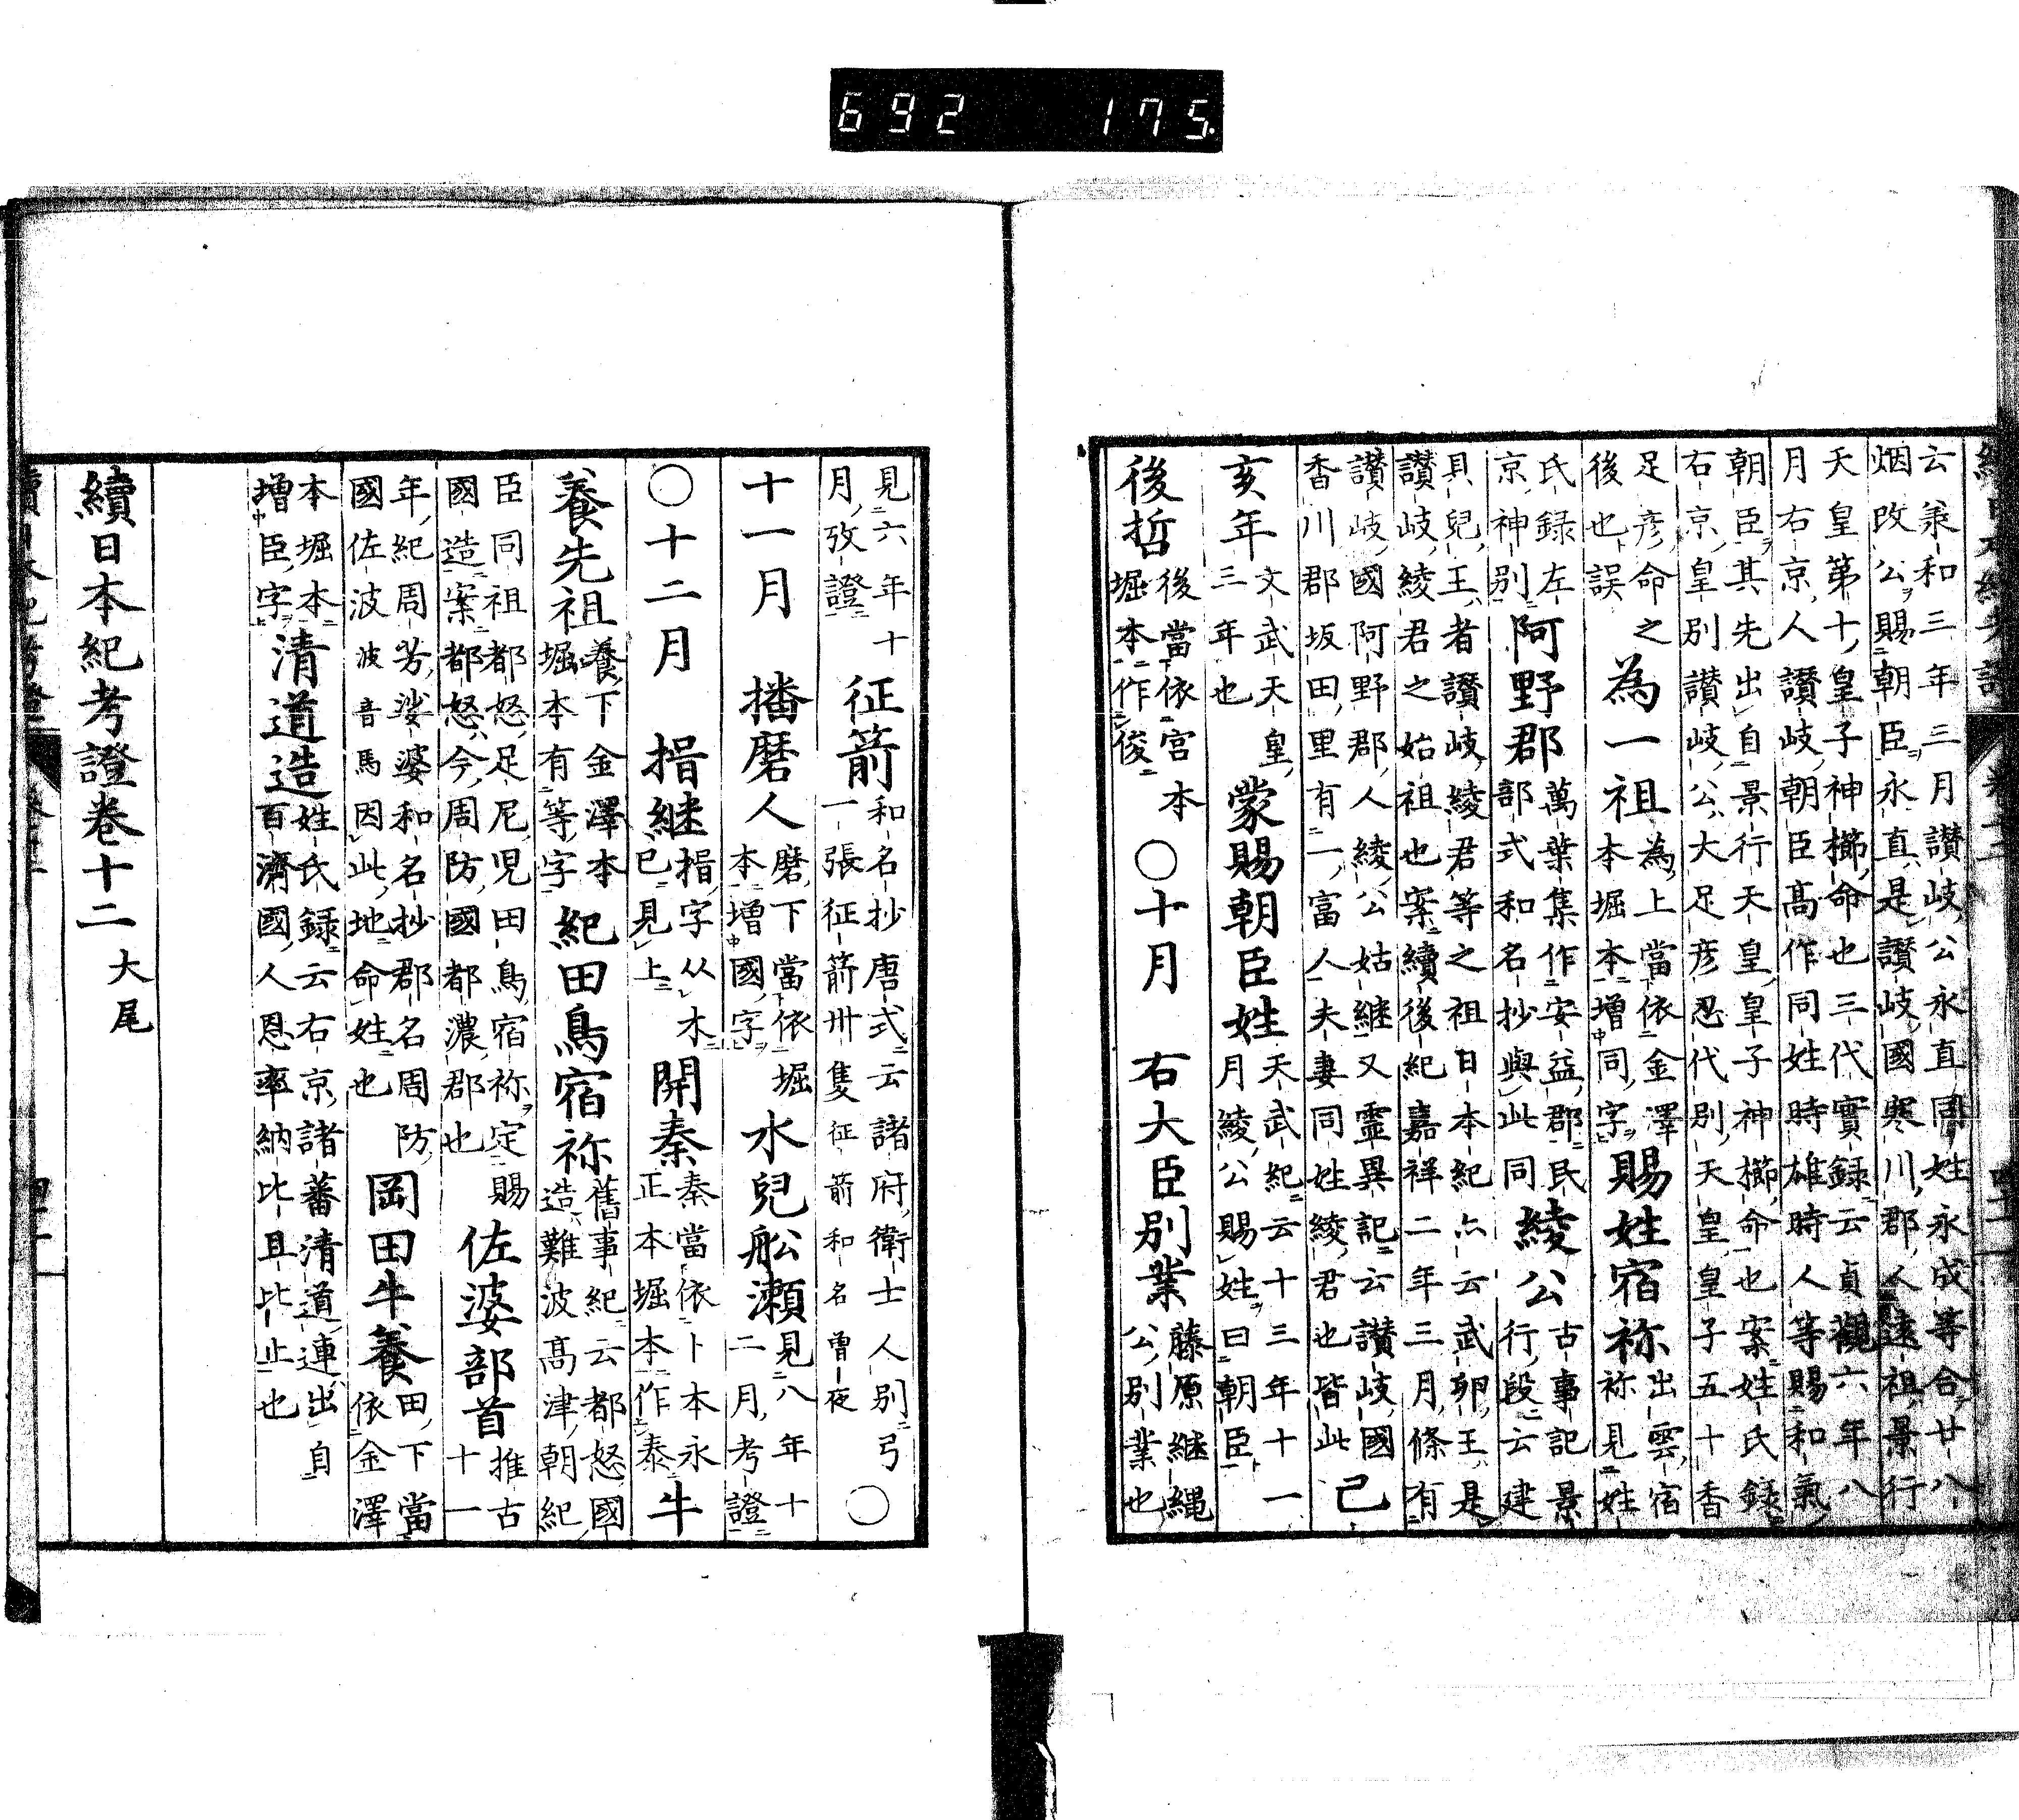 692 175
云承和三年三月讃岐公永直同姓永成等合廿八
烟改公賜朝臣永直是讃岐國寒川郡人遠祖景行
天皇第十皇子神櫛命也三代實録云貞觀六年八
月右京人讃岐朝臣高作同姓時雄時人等賜和氣
朝臣其先出自景行天皇皇子神櫛命也案姓氏録
右京皇別讃岐公大足彦忍代別天皇皇子五十香
足彦命之
後也誤
為一祖
為上當依金澤
本堀本增同字
賜姓宿祢
出雲宿
祢見姓
氏録左
京神別
阿野郡
萬葉集作安益郡民
部式和名抄與此同
綾公
古事記景
行段云建
具兒王者讃岐綾君等之祖日本紀亦云武卵王是
讃岐綾君之始祖也案續後紀嘉祥二年三月條有
讃岐國阿野郡人綾公姑継又霊異記云讃岐國
香川郡坂田里有一富人夫妻同姓綾君也皆此
己
亥年
文武天皇
三年也
蒙賜朝臣姓
天武紀云十三年十一
月綾公賜姓曰朝臣
後哲
後當依宮本
堀本作俊
〇十月 右大臣別業
藤原継縄
公別業也
見六年十
月攷證
征箭
和名抄唐式云諸府衛士人別弓
一張征箭卅隻征箭和名曽夜
〇
十一月 播磨人
磨下當依堀
本增國字
水兒舩瀬
見八年十
二月考證
〇十二月 揖継
揖字从木
已見上
開秦
秦當依卜本永
正本堀本作泰
牛
養先祖
養下金澤本
堀本有等字
紀田鳥宿祢
舊事紀云都怒國
造難波高津朝紀
臣同祖都怒足尼兒田鳥宿祢定賜
國造案都怒今周防國都濃郡也
佐婆部首
推古
十一
年紀周芳娑婆和名抄郡名周防
國佐波波音馬因此地命姓也
岡田牛養
田下當
依金澤
本堀本
增臣字
清道造
姓氏録云右京諸蕃清道連出自
百濟國人恩率納比且比止也
續日本紀考證卷十二 大尾